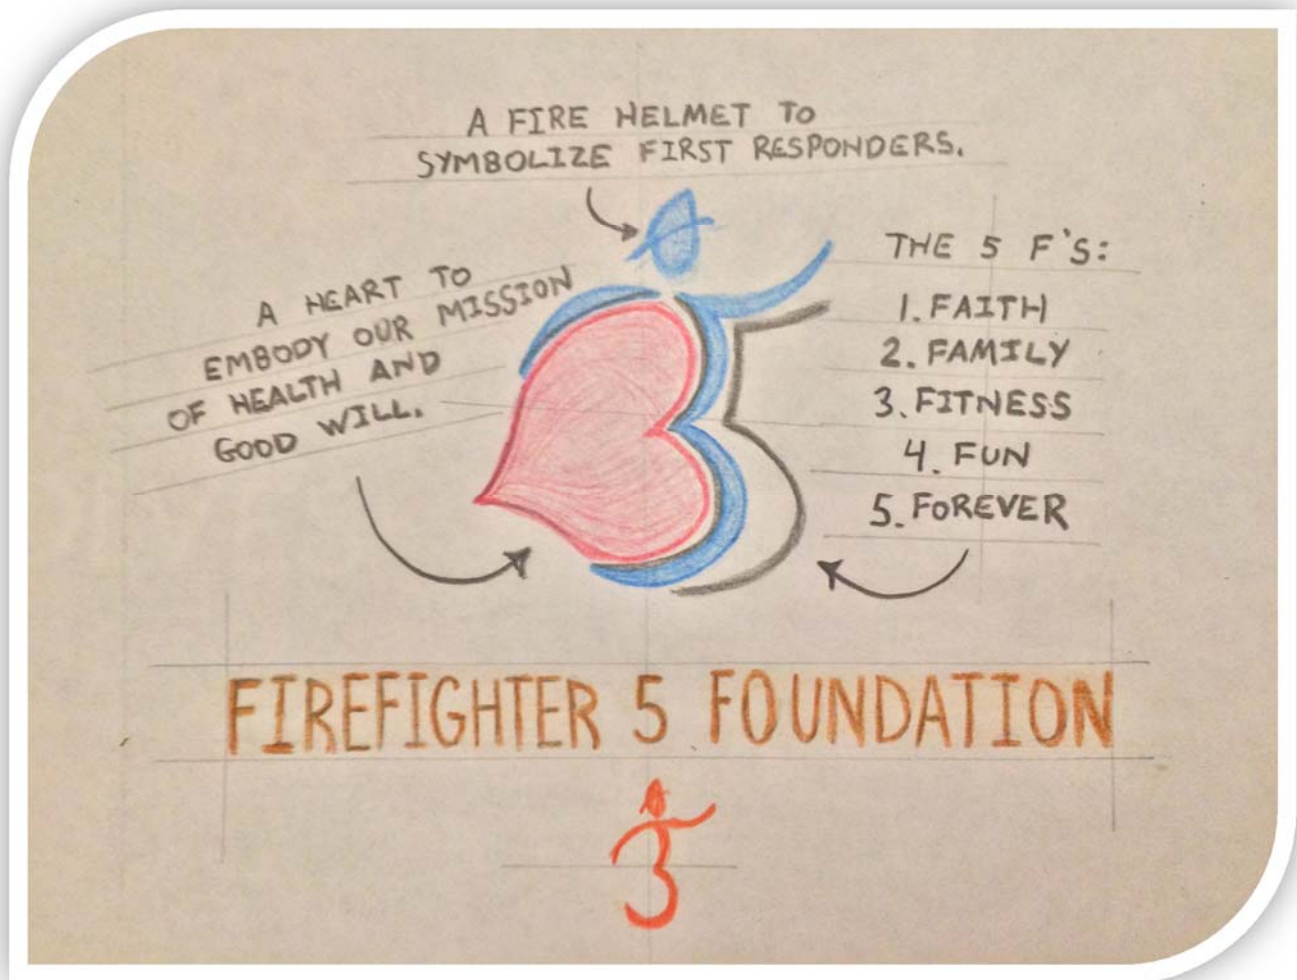 A FIRE HELMET TO
SYMBOLIZE FIRST RESPONDERS.
A HEART TO
EMBODY OUR MISSION
OF HEALTH AND
GOOD WILL.
THE 5 F'S:
1. FAITH
2. FAMILY
3. FITNESS
4. FUN
5. FOREVER
FIREFIGHTER 5 FOUNDATION